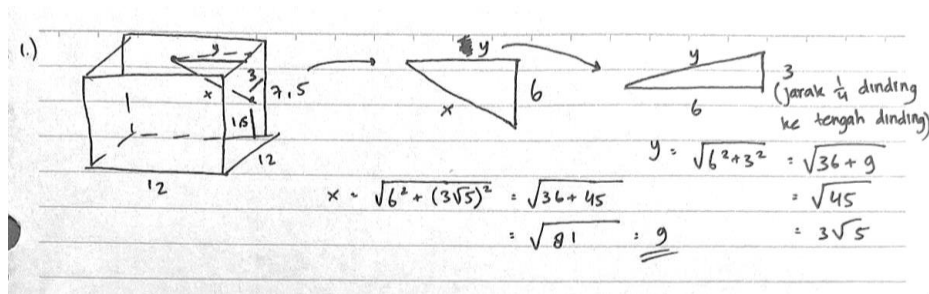 1.)
y
3
x
7,5
1,5
12
12
y
6
x
y
3
6
(jarak 1/4 dinding
ke tengah dinding)
y = √6²+3² = √36+9
= √45
= 3√5
x = √6² + (3√5)² = √36+45
= √81 = 9